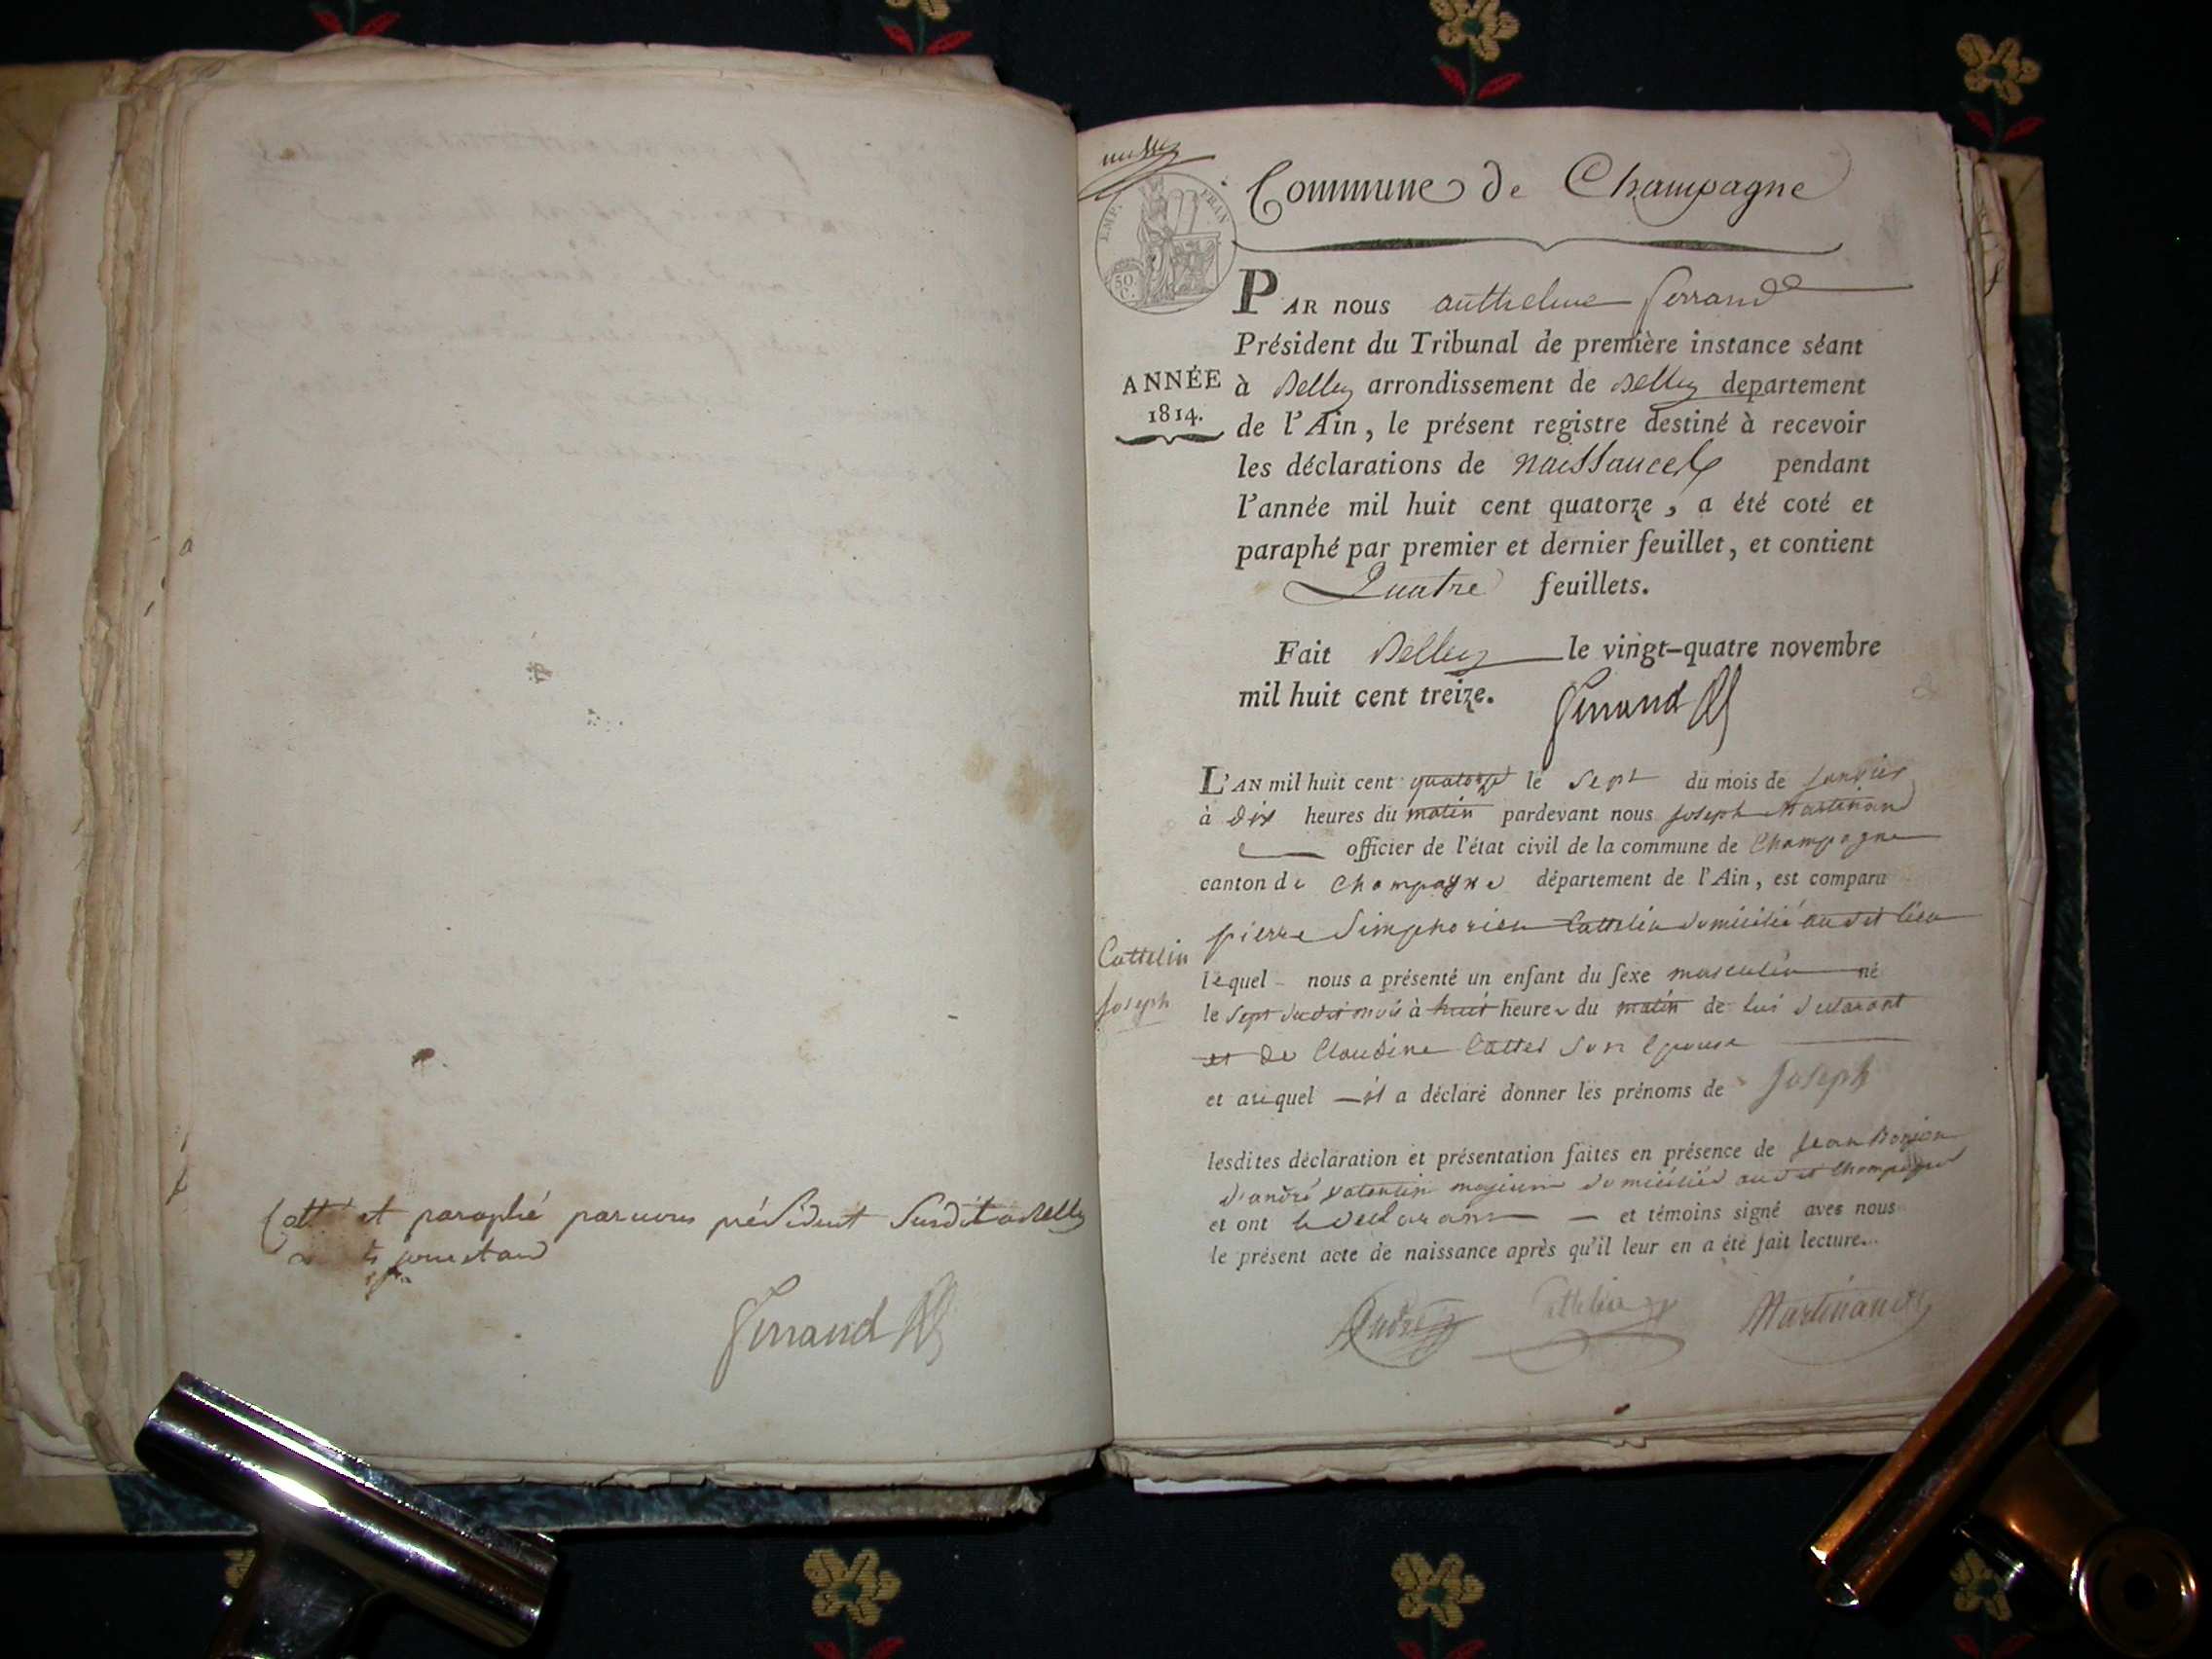 et paraphé par nous président susdit a Belley
Ferrand
Commune de Champagne
EMP. FRAN
50 C.
PAR nous anthelme ferrand
Président du Tribunal de première instance séant
ANNÉE
1814.
à Belley arrondissement de Belley departement
de l'Ain, le présent registre destiné à recevoir
les déclarations de naissances pendant
l'année mil huit cent quatorze, a été coté et
paraphé par premier et dernier feuillet, et contient
Quatre feuillets.
Fait Belley le vingt-quatre novembre
mil huit cent treize. Ferrand
L'AN mil huit cent quatorze le sept du mois de janvier
à dix heures du matin pardevant nous joseph Martinand
officier de l'état civil de la commune de Champagne
canton de Champagne département de l'Ain, est comparu
pierre Simphorien Cattelin domicilié au dit lieu
Cattelin
Joseph
lequel nous a présenté un enfant du sexe masculin né
le sept dudit mois à huit heures du matin de lui declarant
et de Claudine Cattel son Epouse
et auquel il a déclaré donner les prénoms de Joseph
lesdites déclaration et présentation faites en présence de jean
d'andré domiciliés au dit Champagne
et ont le declarant et témoins signé avec nous
le présent acte de naissance après qu'il leur en a été fait lecture.
André Cattelin Martinand